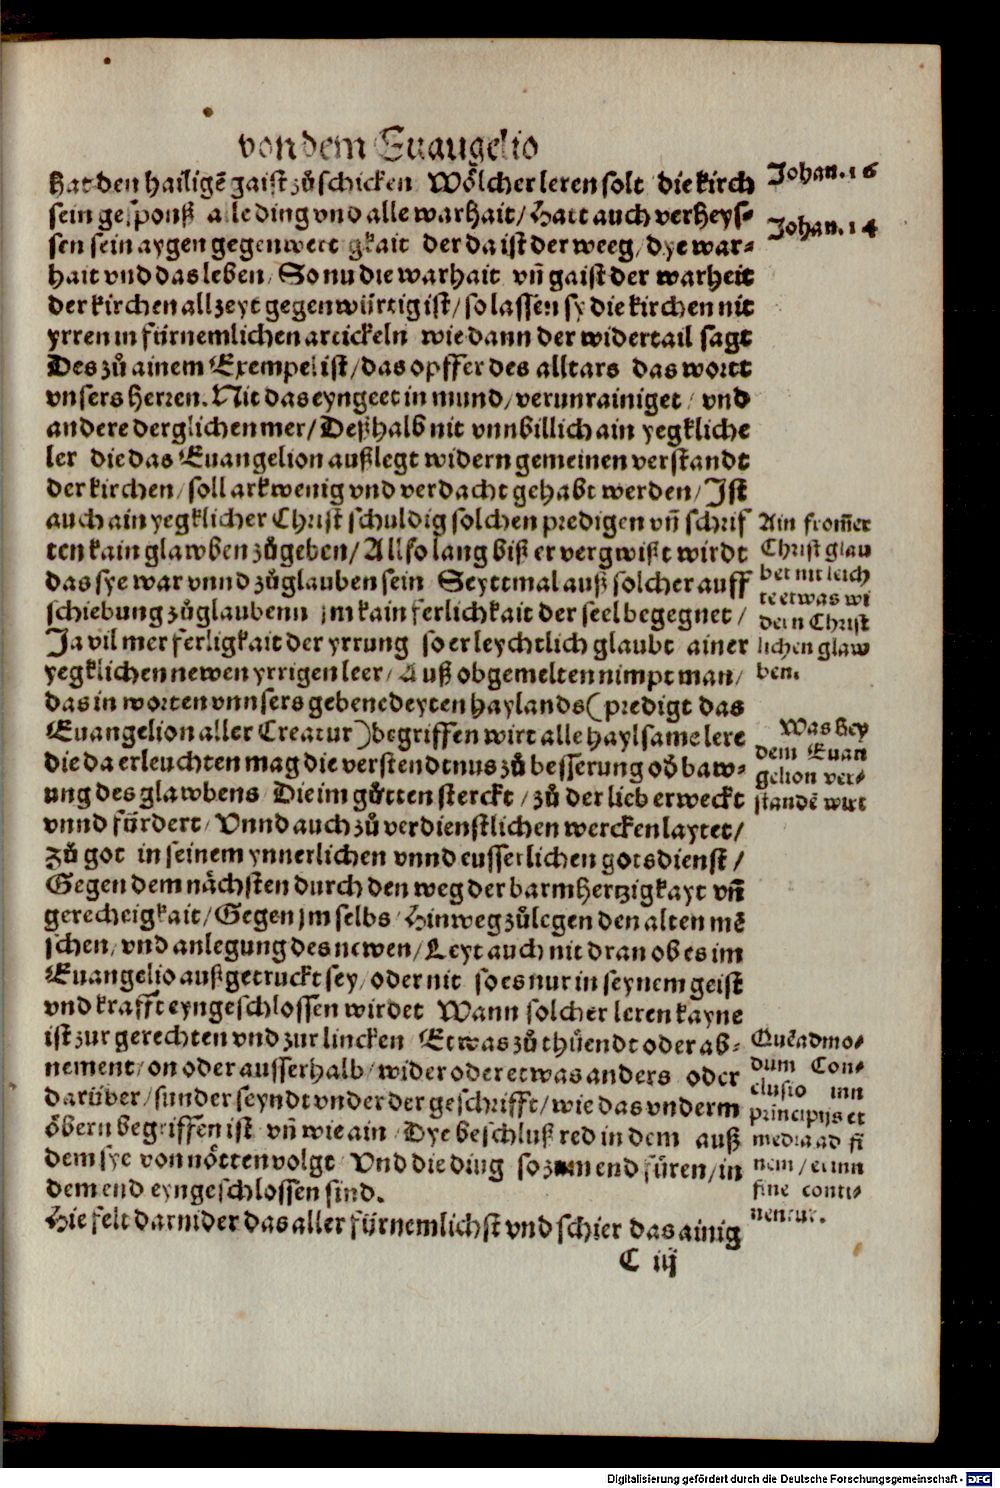 von dem Euangelio
hat den hailigē gaist zů schicken Wölcher leren solt die kirch
sein gesponß alle ding vnd alle warhait / Hatt auch verheys-
sen sein aygen gegenwert gkait der da ist der weeg / dye war-
hait vnd das leben / So nu die warhait vñ gaist der warheit
der kirchen allzeyt gegenwürtig ist / so lassen sy die kirchen nit
yrren in fürnemlichen artickeln wie dann der widertail sagt
Des zů ainem Exempel ist / das opffer des alltars das wortt
vnsers herren. Nit das eyngeet in mund / verunrainiget / vnd
andere derglichen mer / Deßhalb nit vnnbillich ain yegkliche
ler die das Euangelion außlegt widern gemeinen verstandt
der kirchen / soll arkwenig vnd verdacht gehabt werden / Ist
auch ain yegklicher Christ schuldig solchen predigen vñ schrif
ten kain glawben zůgeben / Allso lang biß er vergwißt wirdt
das sye war vnnd zůglauben sein Seyttmal auß solcher auff
schiebung zůglaubenn jm kain ferlichkait der seel begegnet /
Ja vil mer ferligkait der yrrung so er leychtlich glaubt ainer
yegklichen newen yrrigen leer / Auß obgemelten nimpt man /
das in worten vnnsers gebenedeyten haylands (predigt das
Euangelion aller Creatur) begriffen wirt alle haylsame lere
die da erleuchten mag die verstendtnus zů besserung oď baw-
ung des glawbens Die im gůtten sterckt / zů der lieb erweckt
vnnd fürdert / Vnnd auch zů verdienstlichen wercken laytet /
zů got in seinem ynnerlichen vnnd eusserlichen gotsdienst /
Gegen dem nächsten durch den weg der barmhertzigkayt vñ
gerechtigkait / Gegen jm selbs Hinweg zůlegen den alten mē
schen / vnd anlegung des newen / Leyt auch nit dran ob es im
Euangelio außgetruckt sey / oder nit so es nur in seynem geist
vnd krafft eyngeschlossen wirdet Wann solcher leren kayne
ist zur gerechten vnd zur lincken Etwas zů thůendt oder ab-
nement / on oder ausserhalb / wider oder etwas anders oder
darüber / sunder seyndt vnder der geschrifft / wie das vnderm
öbern begriffen ist vñ wie ain Dye beschluß red in dem auß
dem sye von nötten volgt Vnd die ding so zum end füren / in
dem end eyngeschlossen sind.
Hie felt darnider das aller fürnemlichst vnd schier das ainig
C iij
Johan. 16
Johan. 14
Ain from̄er
Christ glau
bet nit leich
te etwas wi
dern Christ
lichen glaw
ben.
Was bey
dem Euan
gelion ver-
standē wirt
Quēadmo-
dum Con-
clusio inn
principijs et
media ad fi
nem / etinn
fine conti-
nentur.
Digitalisierung gefördert durch die Deutsche Forschungsgemeinschaft - DFG